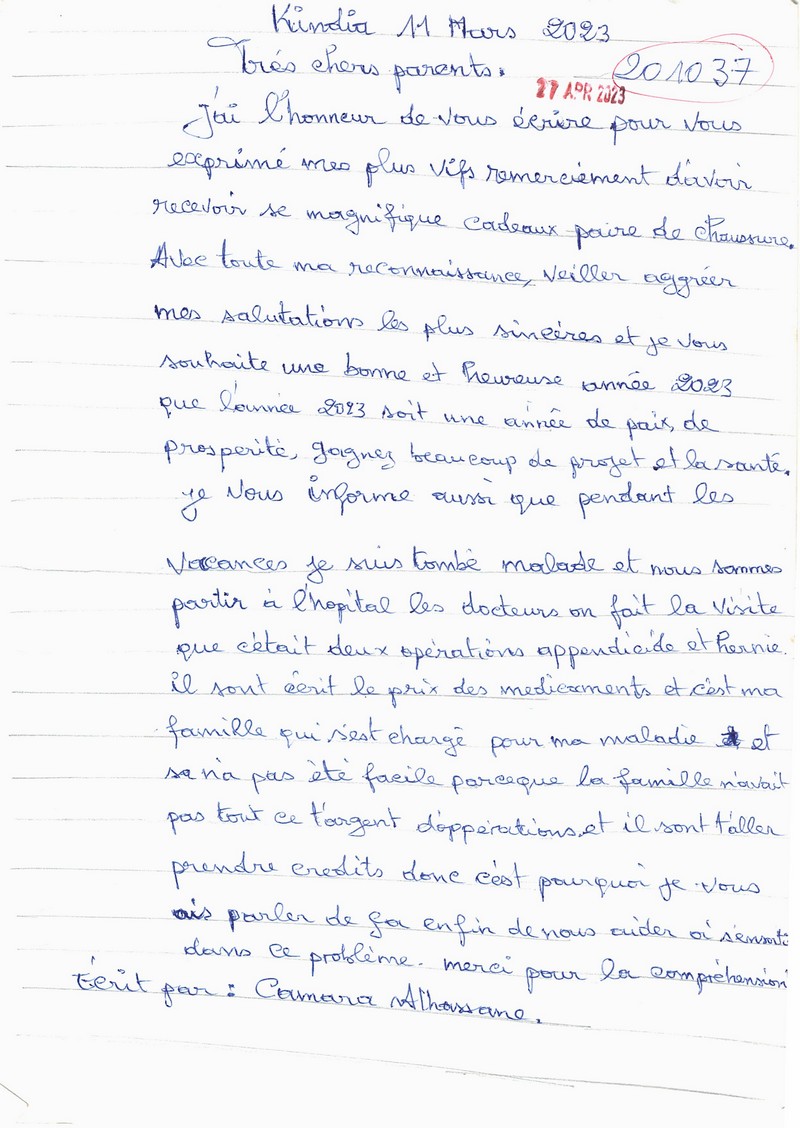 Kindia 11 Mars 2023
Trés chers parents.
201037
27 APR 2023
J'ai l'honneur de vous écrire pour vous
exprimé mes plus vifs remerciement d'avoir
recevoir se magnifique cadeaux paire de chaussure.
Avec toute ma reconnaissance, veiller aggréer
mes salutations les plus sincères et je vous
souhaite une bonne et heureuse année 2023
que l'année 2023 soit une année de paix, de
prosperité, gagnez beaucoup de projet et la santé.
je vous informe aussi que pendant les
Vacances je suis tombé malade et nous sommes
partir à l'hopital les docteurs on fait la visite
que c'était deux opérations appendicide et hernie.
il sont écrit le prix des medicaments et c'est ma
famille qui s'est chargé pour ma maladie et
sa n'a pas été facile parceque la famille n'avait
pas tout ce t'argent d'oppérations, et il sont t'aller
prendre credits donc c'est pourquoi je vous
ais parler de ça enfin de nous aider à s'ensorti
dans ce problème. merci pour la compréhension
Écrit par : Camara Alhassane.